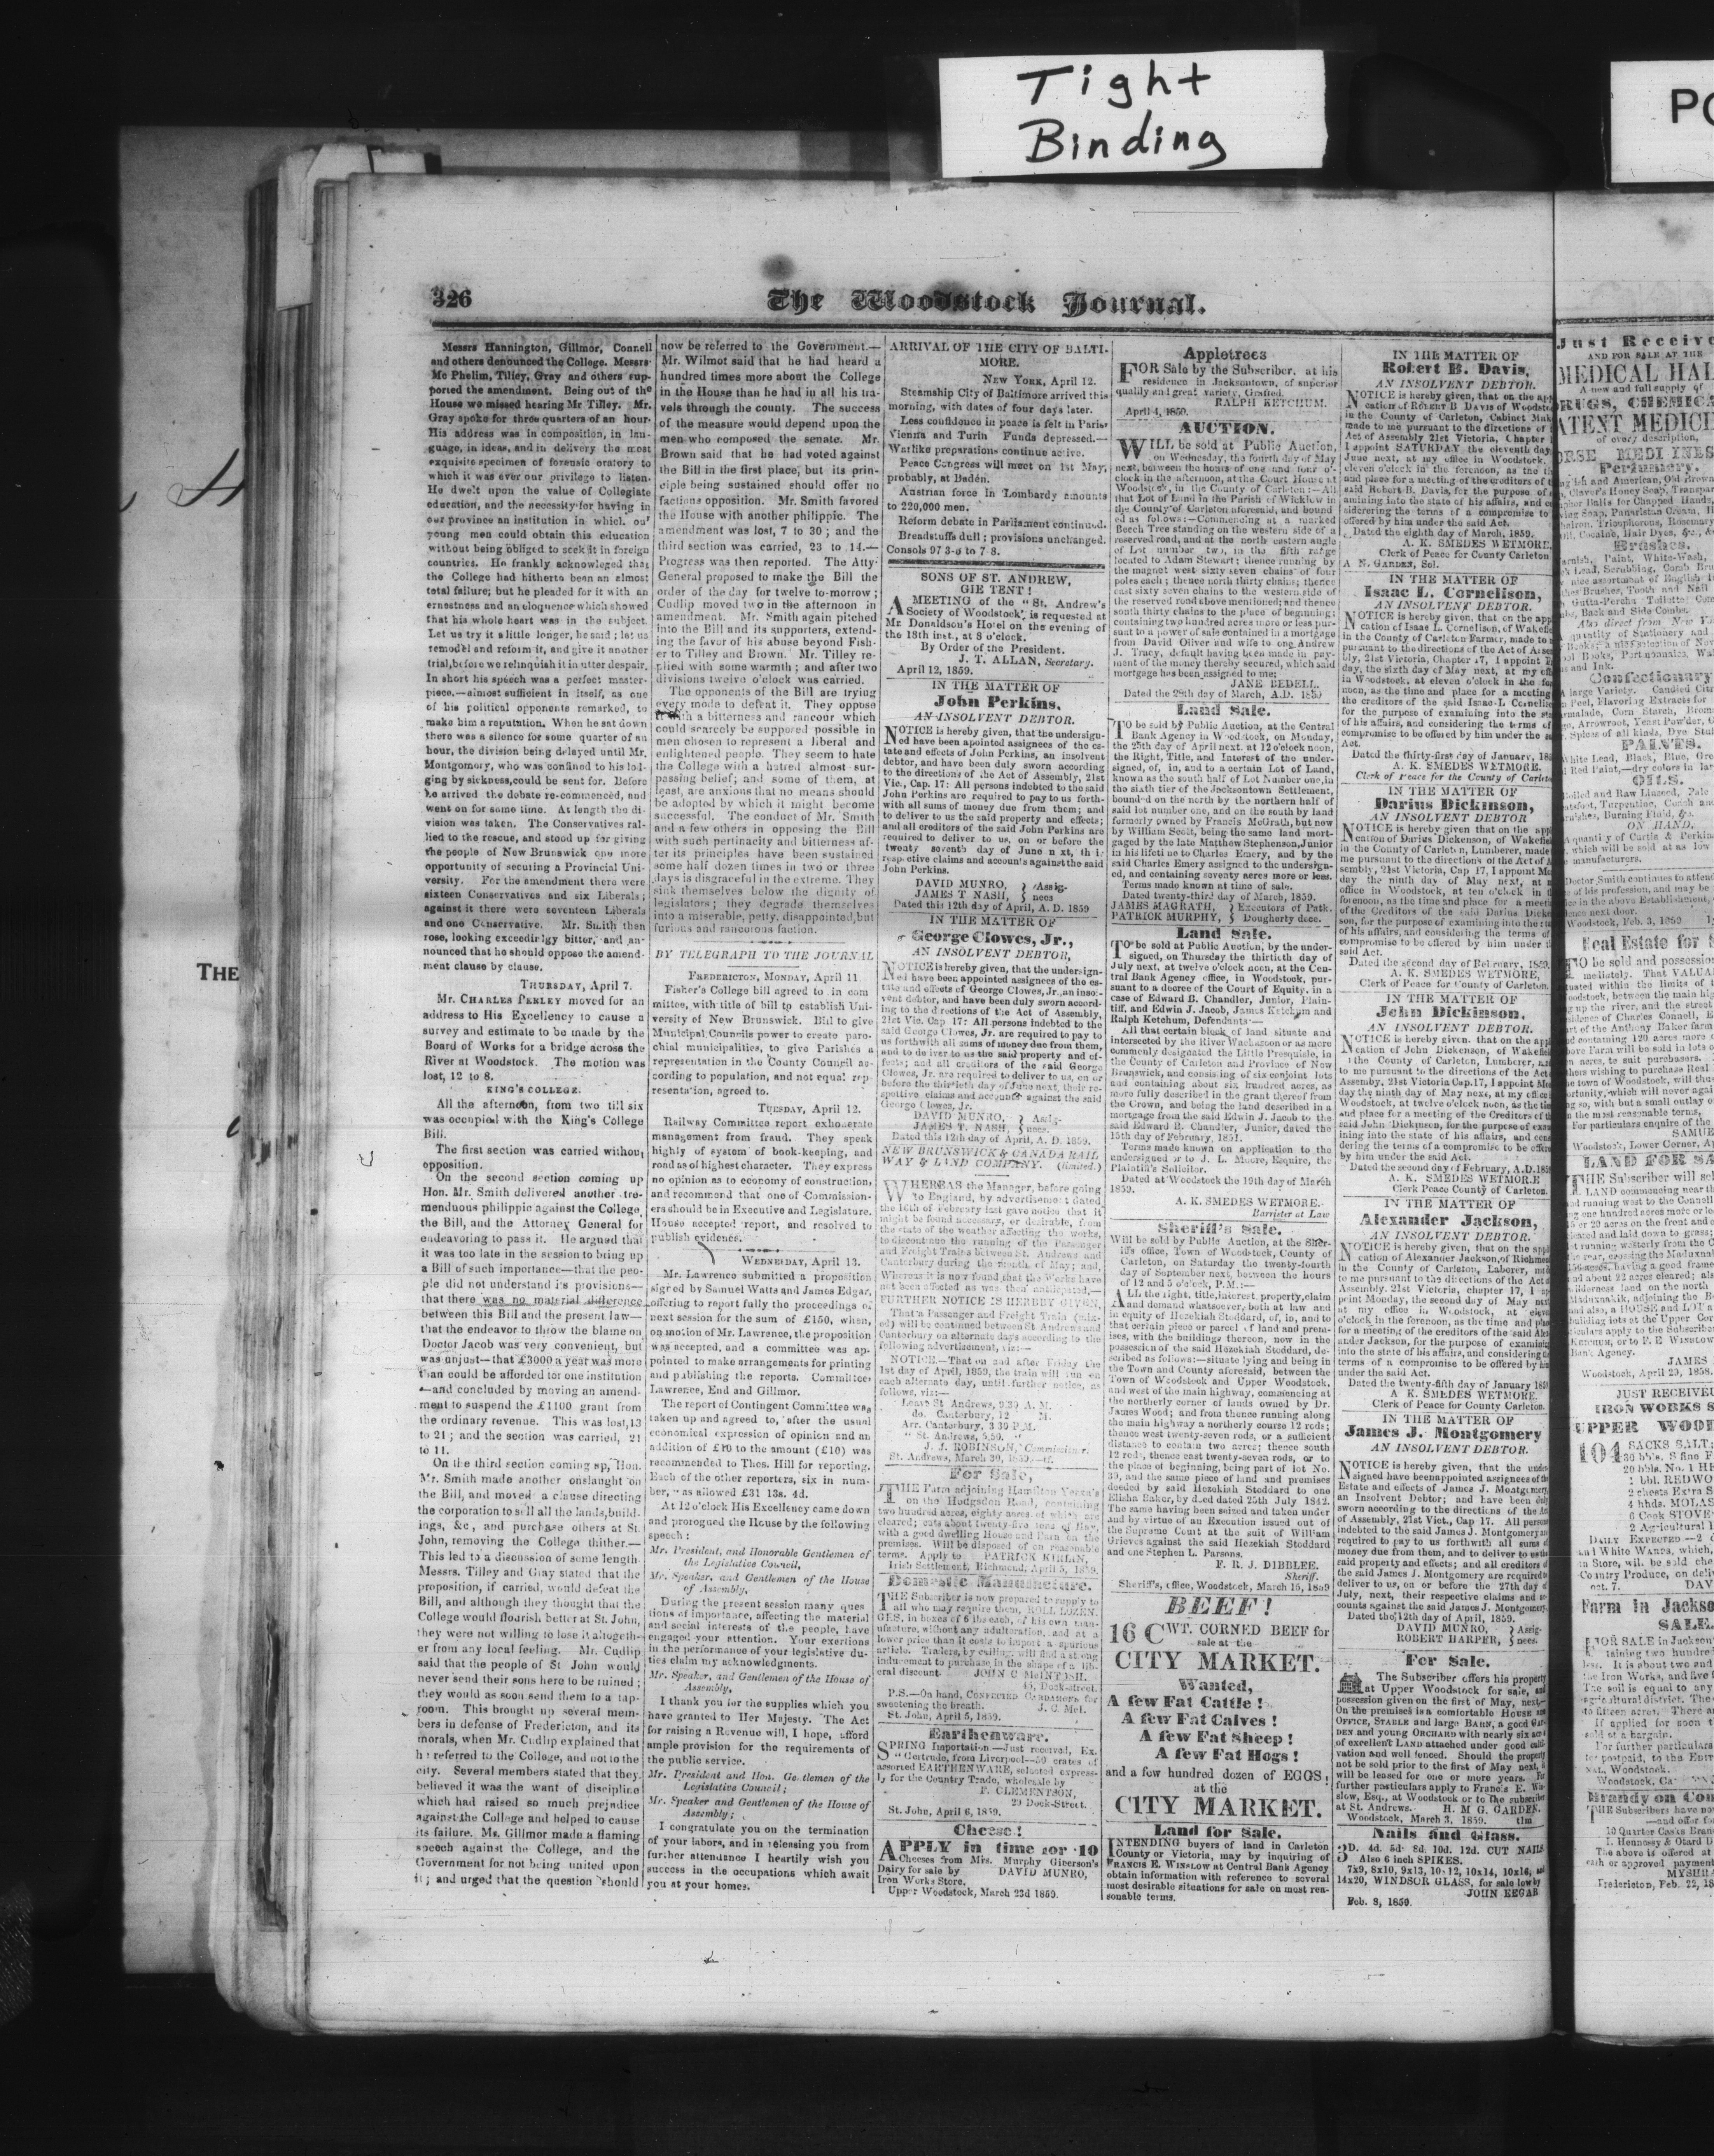 Tight
Binding
PO
THE
326
The Woodstock Journal.
Messrs Hannington, Gillmor, Connell
and others denounced the College. Messrs.
Mc Phelim, Tilley, Gray and others sup-
ported the amendment. Being out of the
House we missed hearing Mr Tilley. Mr.
Gray spoke for three quarters of an hour.
His address was in composition, in lan-
guage, in ideas, and in delivery the most
exquisite specimen of forensic oratory to
which it was ever our privilege to listen.
He dwelt upon the value of Collegiate
education, and the necessity for having in
our province an institution in which, our
young men could obtain this education
without being obliged to seek it in foreign
countries. He frankly acknowleged that
the College had hitherto been an almost
total failure; but he pleaded for it with an
ernestness and an eloquence which showed
that his whole heart was in the subject.
Let us try it a little longer, he said; let us
remodel and reform it, and give it another
trial, before we relinquish it in utter despair.
In short his speech was a perfect master-
piece,—almost sufficient in itself, as one
of his political opponents remarked, to
make him a reputation. When he sat down
there was a silence for some quarter of an
hour, the division being delayed until Mr.
Montgomery, who was confined to his lod-
ging by sickness, could be sent for. Before
he arrived the debate re-commenced, and
went on for some time. At length the di-
vision was taken. The Conservatives ral-
lied to the rescue, and stood up for giving
the people of New Brunswick one more
opportunity of securing a Provincial Uni-
versity. For the amendment there were
sixteen Conservatives and six Liberals;
against it there were seventeen Liberals
and one Conservative. Mr. Smith then
rose, looking exceedingly bitter, and an-
nounced that he should oppose the amend-
ment clause by clause.
THURSDAY, April 7.
Mr. CHARLES PERLEY moved for an
address to His Excellency to cause a
survey and estimate to be made by the
Board of Works for a bridge across the
River at Woodstock. The motion was
lost, 12 to 8.
KING'S COLLEGE.
All the afternoon, from two till six
was occupied with the King's College
Bill.
The first section was carried without
opposition.
On the second section coming up
Hon. Mr. Smith delivered another tre-
menduous philippic against the College,
the Bill, and the Attorney General for
endeavoring to pass it. He argued that
it was too late in the session to bring up
a Bill of such importance—that the peo-
ple did not understand its provisions—
that there was no material difference
between this Bill and the present law—
that the endeavor to throw the blame on
Doctor Jacob was very convenient, but
was unjust—that £3000 a year was more
than could be afforded for one institution
—and concluded by moving an amend-
ment to suspend the £1100 grant from
the ordinary revenue. This was lost, 13
to 21; and the section was carried, 21
to 11.
On the third section coming up, Hon.
Mr. Smith made another onslaught on
the Bill, and moved a clause directing
the corporation to sell all the lands, build-
ings, &c, and purchase others at St.
John, removing the College thither.—
This led to a discussion of some length.
Messrs. Tilley and Gray stated that the
proposition, if carried, would defeat the
Bill, and although they thought that the
College would flourish better at St. John,
they were not willing to lose it altogeth-
er from any local feeling. Mr. Cudlip
said that the people of St John would
never send their sons here to be ruined;
they would as soon send them to a tap-
room. This brought up several mem-
bers in defense of Fredericton, and its
morals, when Mr. Cudlip explained that
he referred to the College, and not to the
city. Several members stated that they
believed it was the want of discipline
which had raised so much prejudice
against the College and helped to cause
its failure. Mr. Gillmor made a flaming
speech against the College, and the
Government for not being united upon
it; and urged that the question should
now be referred to the Government.—
Mr. Wilmot said that he had heard a
hundred times more about the College
in the House than he had in all his tra-
vels through the county. The success
of the measure would depend upon the
men who composed the senate. Mr.
Brown said that he had voted against
the Bill in the first place, but its prin-
ciple being sustained should offer no
factious opposition. Mr. Smith favored
the House with another philippic. The
amendment was lost, 7 to 30; and the
third section was carried, 23 to 14.—
Progress was then reported. The Atty-
General proposed to make the Bill the
order of the day for twelve to-morrow;
Cudlip moved two in the afternoon in
amendment. Mr. Smith again pitched
into the Bill and its supporters, extend-
ing the favor of his abuse beyond Fish-
er to Tilley and Brown. Mr. Tilley re-
plied with some warmth; and after two
divisions twelve o'clock was carried.
The opponents of the Bill are trying
every mode to defeat it. They oppose
it with a bitterness and rancour which
could scarcely be supposed possible in
men chosen to represent a liberal and
enlightened people. They seem to hate
the College with a hatred almost sur-
passing belief; and some of them, at
least, are anxious that no means should
be adopted by which it might become
successful. The conduct of Mr. Smith
and a few others in opposing the Bill
with such pertinacity and bitterness af-
ter its principles have been sustained
some half dozen times in two or three
days is disgraceful in the extreme. They
sink themselves below the dignity of
legislators; they degrade themselves
into a miserable, petty, disappointed, but
furious and rancorous faction.
BY TELEGRAPH TO THE JOURNAL
FREDERICTON, MONDAY, April 11.
Fisher's College bill agreed to in com
mittee, with title of bill to establish Uni-
versity of New Brunswick. Bill to give
Municipal Councils power to create paro-
chial municipalities, to give Parishes a
representation in the County Council ac-
cording to population, and not equal rep-
resentation, agreed to.
TUESDAY, April 12.
Railway Committee report exhonerate
management from fraud. They speak
highly of system of book-keeping, and
road as of highest character. They express
no opinion as to economy of construction,
and recommend that one of Commission-
ers should be in Executive and Legislature.
House accepted report, and resolved to
publish evidence.
WEDNESDAY, April 13.
Mr. Lawrence submitted a proposition
signed by Samuel Watts and James Edgar,
offering to report fully the proceedings of
next session for the sum of £150, when,
on motion of Mr. Lawrence, the proposition
was accepted, and a committee was ap-
pointed to make arrangements for printing
and publishing the reports. Committee
Lawrence, End and Gillmor.
The report of Contingent Committee was
taken up and agreed to, after the usual
economical expression of opinion and an
addition of £10 to the amount (£10) was
recommended to Thos. Hill for reporting.
Each of the other reporters, six in num-
ber, was allowed £31 13s. 4d.
At 12 o'clock His Excellency came down
and prorogued the House by the following
speech:
Mr. President, and Honorable Gentlemen of
the Legislative Council,
Mr. Speaker, and Gentlemen of the House
of Assembly,
During the present session many ques
tions of importance, affecting the material
and social interests of the people, have
engaged your attention. Your exertions
in the performance of your legislative du-
ties claim my acknowledgments.
Mr. Speaker, and Gentlemen of the House of
Assembly,
I thank you for the supplies which you
have granted to Her Majesty. The Act
for raising a Revenue will, I hope, afford
ample provision for the requirements of
the public service.
Mr. President and Hon. Gentlemen of the
Legislative Council;
Mr. Speaker and Gentlemen of the House of
Assembly;
I congratulate you on the termination
of your labors, and in releasing you from
further attendance I heartily wish you
success in the occupations which await
you at your homes.
ARRIVAL OF THE CITY OF BALTI-
MORE.
NEW YORK, April 12.
Steamship City of Baltimore arrived this
morning, with dates of four days later.
Less confidence in peace is felt in Paris
Vienna and Turin Funds depressed.—
Warlike preparations continue active.
Peace Congress will meet on 1st May,
probably, at Baden.
Austrian force in Lombardy amounts
to 220,000 men.
Reform debate in Parliament continued.
Breadstuffs dull; provisions unchanged.
Consols 97 3-8 to 7-8.
SONS OF ST. ANDREW,
GIE TENT!
A MEETING of the "St. Andrew's
Society of Woodstock' is requested at
Mr. Donaldson's Hotel on the evening of
the 18th inst., at 8 o'clock.
By Order of the President.
J. T. ALLAN, Secretary.
April 12, 1859.
IN THE MATTER OF
John Perkins,
AN INSOLVENT DEBTOR.
NOTICE is hereby given, that the undersign-
ed have been apointed assignees of the es-
tate and effects of John Perkins, an insolvent
debtor, and have been duly sworn according
to the directions of the Act of Assembly, 21st
Vic., Cap. 17: All persons indebted to the said
John Perkins are required to pay to us forth-
with all sums of money due from them; and
to deliver to us the said property and effects;
and all creditors of the said John Perkins are
required to deliver to us, on or before the
twenty seventh day of June next, their
respective claims and accounts against the said
John Perkins.
DAVID MUNRO, } Assig-
JAMES T NASH, } nees
Dated this 12th day of April, A. D. 1859
IN THE MATTER OF
George Clowes, Jr.,
AN INSOLVENT DEBTOR,
NOTICE is hereby given, that the undersign-
ed have been appointed assignees of the es-
tate and effects of George Clowes, Jr., an insol-
vent debtor, and have been duly sworn accord-
ing to the directions of the Act of Assembly,
21st Vic. Cap 17: All persons indebted to the
said George Clowes, Jr. are required to pay to
us forthwith all sums of money due from them,
and to deliver to us the said property and ef-
fects; and all creditors of the said George
Clowes, Jr. are required to deliver to us, on or
before the thirtieth day of June next, their re-
spective claims and accounts against the said
George Clowes, Jr.
DAVID MUNRO, } Assig-
JAMES T. NASH, } nees.
Dated this 12th day of April, A. D. 1859.
NEW BRUNSWICK & CANADA RAIL
WAY & LAND COMPANY. (limited.)
WHEREAS the Manager, before going
to England, by advertisement dated
the 16th of February last gave notice that it
might be found necessary, or desirable, from
the state of the weather affecting the works,
to discontinue the running of the Passenger
and Freight Trains between St. Andrews and
Canterbury during the month of May; and,
Whereas it is now found that the Works have
not been affected as was then anticipated,—
FURTHER NOTICE IS HEREBY GIVEN,
That a Passenger and Freight Train (mix-
ed) will be continued between St Andrews and
Canterbury on alternate days according to the
following advertisement, viz:—
NOTICE.—That on and after Friday the
1st day of April, 1859, the train will run on
each alternate day, until further notice, as
follows, viz:—
Leave St Andrews, 9.30 A. M.
do. Canterbury, 12 M.
Arr. Canterbury, 3 30 P.M.
" St. Andrews, 5.50. "
J. J. ROBINSON, Commissioner.
St. Andrews, March 30, 1859.—tf.
For Sale,
THE Farm adjoining Hamilton Yerxa's
on the Hodgsdon Road, containing
two hundred acres, eighty acres of which are
cleared; cuts about twenty-five tons of Hay,
with a good dwelling House and Barn on the
premises. Will be disposed of on reasonable
terms. Apply to PATRICK KIRLIN,
Irish Settlement, Richmond, April 5, 1859.
Domestic Manufacture.
THE Subscriber is now prepared to supply to
all who may require them, ROLL LOZEN-
GES, in boxes of 6 lbs each, of his own man-
ufacture, without any adulteration, and at a
lower price than it costs to import a spurious
article. Traders, by calling, will find a strong
inducement to purchase in the shape of a lib-
eral discount. JOHN C McINTOSH,
45, Dock-street.
P.S.—On hand, CONFECTED CARDAMOMS for
sweetening the breath. J. C. McI.
St. John, April 5, 1859.
Earthenware.
SPRING Importation—Just received, Ex.
"Gertrude, from Liverpool—50 crates of
assorted EARTHENWARE, selected express-
ly for the Country Trade, wholesale by
F. CLEMENTSON,
29 Dock-Street.
St. John, April 6, 1859.
Cheese!
APPLY in time for 10
Cheeses from Mrs. Murphy Giberson's
Dairy for sale by DAVID MUNRO,
Iron Works Store,
Upper Woodstock, March 23d 1859.
Appletrees
FOR Sale by the Subscriber, at his
residence in Jacksontown, of superior
quality and great variety, Grafted.
RALPH KETCHUM.
April 4, 1859.
AUCTION.
WILL be sold at Public Auction,
on Wednesday, the fourth day of May
next, between the hours of one and four o'-
clock in the afternoon, at the Court House at
Woodstock, in the County of Carleton:—All
that Lot of Land in the Parish of Wicklow in
the County of Carleton aforesaid, and bound
ed as follows:—Commencing at a marked
Beech Tree standing on the western side of a
reserved road, and at the north eastern angle
of Lot number two, in the fifth range
located to Adam Stewart; thence running by
the magnet west sixty seven chains of four
poles each; thence north thirty chains; thence
east sixty seven chains to the western side of
the reserved road above mentioned; and thence
south thirty chains to the place of beginning;
containing two hundred acres more or less pur-
suant to a power of sale contained in a mortgage
from David Oliver and wife to one Andrew
J. Tracy, default having been made in pay-
ment of the money thereby secured, which said
mortgage has been assigned to me;
JANE BEDELL.
Dated the 29th day of March, A.D. 1859
Land Sale.
TO be sold by Public Auction, at the Central
Bank Agency in Woodstock, on Monday,
the 25th day of April next. at 12 o'clock noon,
the Right, Title, and Interest of the under-
signed, of, in, and to a certain Lot of Land,
known as the south half of Lot Number one, in
the sixth tier of the Jacksontown Settlement,
bounded on the north by the northern half of
said lot number one, and on the south by land
formerly owned by Francis McGrath, but now
by William Scott, being the same land mort-
gaged by the late Matthew Stephenson, Junior
in his lifetime to Charles Emery, and by the
said Charles Emery assigned to the undersign-
ed, and containing seventy acres more or less.
Terms made known at time of sale.
Dated twenty-third day of March, 1859.
JAMES MAGRATH, } Executors of Patk.
PATRICK MURPHY, } Dougherty dece.
Land Sale.
TO be sold at Public Auction, by the under-
signed, on Thursday the thirtieth day of
July next, at twelve o'clock noon, at the Cen-
tral Bank Agency office, in Woodstock, pur-
suant to a decree of the Court of Equity, in a
case of Edward B. Chandler, Junior, Plain-
tiff, and Edwin J. Jacob, James Ketchum and
Ralph Ketchum, Defendants:—
All that certain block of land situate and
intersected by the River Wachamson or as more
commonly designated the Little Presquisle, in
the County of Carleton and Province of New
Brunswick, and consisting of six conjoint lots
and containing about six hundred acres, as
more fully described in the grant thereof from
the Crown, and being the land described in a
mortgage from the said Edwin J. Jacob to the
said Edward B. Chandler, Junior, dated the
15th day of February, 1851.
Terms made known on application to the
undersigned or to J. L. Moore, Esquire, the
Plaintiff's Solicitor.
Dated at Woodstock the 19th day of March
1859.
A. K. SMEDES WETMORE.
Barrister at Law
Sheriff's Sale.
Will be sold by Public Auction, at the Sher-
iff's office, Town of Woodstock, County of
Carleton, on Saturday the twenty-fourth
day of September next, between the hours
of 12 and 5 o'clock, P.M.:—
ALL the right, title, interest, property, claim
and demand whatsoever, both at law and
in equity of Hezekiah Stoddard, of, in, and to
that certain piece or parcel of land and prem-
ises, with the buildings thereon, now in the
possession of the said Hezekiah Stoddard, de-
scribed as follows:—situate lying and being in
the Town and County aforesaid, between the
Town of Woodstock and Upper Woodstock,
and west of the main highway, commencing at
the northerly corner of lands owned by Dr.
James Wood; and from thence running along
the main highway a northerly course 12 rods;
thence west twenty-seven rods, or a sufficient
distance to contain two acres; thence south
12 rods, thence east twenty-seven rods, or to
the place of beginning, being part of lot No.
39, and the same piece of land and premises
deeded by said Hezekiah Stoddard to one
Elisha Baker, by deed dated 25th July 1842.
The same having been seized and taken under
and by virtue of an Execution issued out of
the Supreme Court at the suit of William
Grieves against the said Hezekiah Stoddard
and one Stephen L. Parsons.
F. R. J. DIBBLEE,
Sheriff.
Sheriff's, office, Woodstock, March 15, 1859
BEEF!
16 CWT. CORNED BEEF for
sale at the
CITY MARKET.
Wanted,
A few Fat Cattle!
A few Fat Calves!
A few Fat Sheep!
A few Fat Hogs!
and a few hundred dozen of EGGS,
at the
CITY MARKET.
Land for Sale.
INTENDING buyers of land in Carleton
County or Victoria, may by inquiring of
FRANCIS E. WINSLOW at Central Bank Agency
obtain information with reference to several
most desirable situations for sale on most rea-
sonable terms.
IN THE MATTER OF
Robert B. Davis,
AN INSOLVENT DEBTOR.
NOTICE is hereby given, that on the app
cation of ROBERT B DAVIS of Woodsto
in the County of Carleton, Cabinet Mak
made to me pursuant to the directions of
Act of Assembly 21st Victoria, Chapter
I appoint SATURDAY the eleventh day
June next, at my office in Woodstock,
eleven o'clock in the forenoon, as the ti
and place for a meeting of the creditors of t
said Robert B. Davis, for the purpose of e
amining into the state of his affairs, and co
sidering the terms of a compromise to
offered by him under the said Act.
Dated the eighth day of March, 1859.
A. K. SMEDES WETMORE,
Clerk of Peace for County Carleton
A N. GARDEN, Sol.
IN THE MATTER OF
Isaac L. Cornelison,
AN INSOLVENT DEBTOR.
NOTICE is hereby given, that on the app
cation of Isaac L. Cornelison, of Wakefie
in the County of Carleton Farmer, made to
pursuant to the directions of the Act of Asse
bly, 21st Victoria, Chapter 17, I appoint
day, the sixth day of May next, at my off
in Woodstock, at eleven o'clock in the for
noon, as the time and place for a meeting
the creditors of the said Isaac L Cornelis
for the purpose of examining into the sta
of his affairs, and considering the terms of
compromise to be offered by him under the
Act.
Dated the thirty-first day of January, 185
A. K. SMEDES WETMORE.
Clerk of Peace for the County of Carleto
IN THE MATTER OF
Darius Dickinson,
AN INSOLVENT DEBTOR
NOTICE is hereby given that on the appl
cation of Darius Dickenson, of Wakefield
in the County of Carleton, Lumberer, made
me pursuant to the directions of the Act of A
sembly, 21st Victoria, Cap 17, I appoint Mo
day the ninth day of May next, at
office in Woodstock, at ten o'clock in
forenoon, as the time and place for a meeti
of the Creditors of the said Darius Dicke
son, for the purpose of examining into the
of his affairs, and considering the terms of
compromise to be offered by him under
said Act.
Dated the second day of February, 1859.
A. K. SMEDES WETMORE,
Clerk of Peace for County of Carleton.
IN THE MATTER OF
John Dickinson,
AN INSOLVENT DEBTOR.
NOTICE is hereby given. that on the appl
cation of John Dickenson, of Wakefield
the County of Carleton, Lumberer,
to me pursuant to the directions of the Act
Assemby, 21st Victoria Cap.17, I appoint Mo
day the ninth day of May next, at my office
Woodstock, at twelve o'clock noon, as the ti
and place for a meeting of the Creditors of
said John Dickinson, for the purpose of exa
ining into the state of his affairs, and cons
dering the terms of a compromise to be offered
by him under the said Act.
Dated the second day of February, A.D.185
A. K. SMEDES WETMORE
Clerk Peace County of Carleton.
IN THE MATTER OF
Alexander Jackson,
AN INSOLVENT DEBTOR.
NOTICE is hereby given, that on the appl
cation of Alexander Jackson, of Richmon
in the County of Carleton, Laborer,
to me pursuant to the directions of the Act
Assembly. 21st Victoria, chapter 17, I ap
point Monday, the second day of May next
at my office in Woodstock, at eleven
o'clock in the forenoon, as the time and place
for a meeting of the creditors of the said Alex
ander Jackson, for the purpose of examining
into the state of his affairs, and considering the
terms of a compromise to be offered by him
under the said Act.
Dated the twenty-fifth day of January 185
A K. SMEDES WETMORE.
Clerk of Peace for County Carleton.
IN THE MATTER OF
James J. Montgomery
AN INSOLVENT DEBTOR.
NOTICE is hereby given, that the under
signed have been appointed assignees of the
Estate and effects of James J. Montgomery,
an Insolvent Debtor; and have been duly
sworn according to the directions of the Act
of Assembly, 21st Vict., Cap 17. All persons
indebted to the said James J. Montgomery are
required to pay to us forthwith all sums of
money due from them, and to deliver to us the
said property and effects; and all creditors of
the said James J. Montgomery are required to
deliver to us, on or before the 27th day of
July, next, their respective claims and ac-
counts against the said James J. Montgomery.
Dated the 12th day of April, 1859.
DAVID MUNRO, } Assig-
ROBERT HARPER, } nees.
For Sale.
The Subscriber offers his property
at Upper Woodstock for sale, and
possession given on the first of May, next—
On the premises is a comfortable HOUSE and
OFFICE, STABLE and large BARN, a good GAR-
DEN and young ORCHARD with nearly six acres
of excellent LAND attached under good culti-
vation and well fenced. Should the property
not be sold prior to the first of May next, it
will be leased for one or more years. For
further particulars apply to Francis E. Win-
slow, Esq., at Woodstock or to The subscriber
at St. Andrews. H. M G. GARDEN.
Woodstock, March 3, 1859. tlm
Nails and Glass.
3D. 4d. 5d. 8d. 10d. 12d. CUT NAILS
Also 6 inch SPIKES.
7x9, 8x10, 9x13, 10x12, 10x14, 10x16, and
14x20, WINDSOR GLASS, for sale low by
JOHN EDGAR
Feb. 8, 1859.
Just Receive
AND FOR SALE AT THE
MEDICAL HAL
A new and full supply of
RUGS, CHEMICA
ATENT MEDICI
of every description,
ORSE MEDI INES
Perfumery.
Brushes.
Also direct from New Y
Confectionary
A large Variety. Candied Cit
PAINTS.
OILS.
ON HAND,
Doctor Smith continues to attend
of his profession, and may be
ence next door.
Woodstock, Feb. 3, 1859
Real Estate for
TO be sold and possession
mediately. That VALUA
For particulars enquire of the
SAMUE
Woodstock, Lower Corner, A
LAND FOR SA
THE Subscriber will sel
LAND commencing near th
JAMES
Woodstock, April 23, 1858.
JUST RECEIVED
IRON WORKS S
UPPER WOOD
104 SACKS SALT;
20 bbls. No. 1 HE
1 bbl. REDWO
2 chests Extra S
4 hhds. MOLAS
6 Cook STOVE
2 Agricultural
DAILY EXPECTED—2
DAV
Farm in Jackso
SALE
FOR SALE in Jackson
taining two hundred
Woodstock, Ca
Brandy on Con
THE Subscribers have no
—and offer fo
10 Quarter Casks Bran
J. Hennessy & Otard D
The above is offered at
cash or approved payment
MYSHRA
Fredericton, Feb. 22, 18